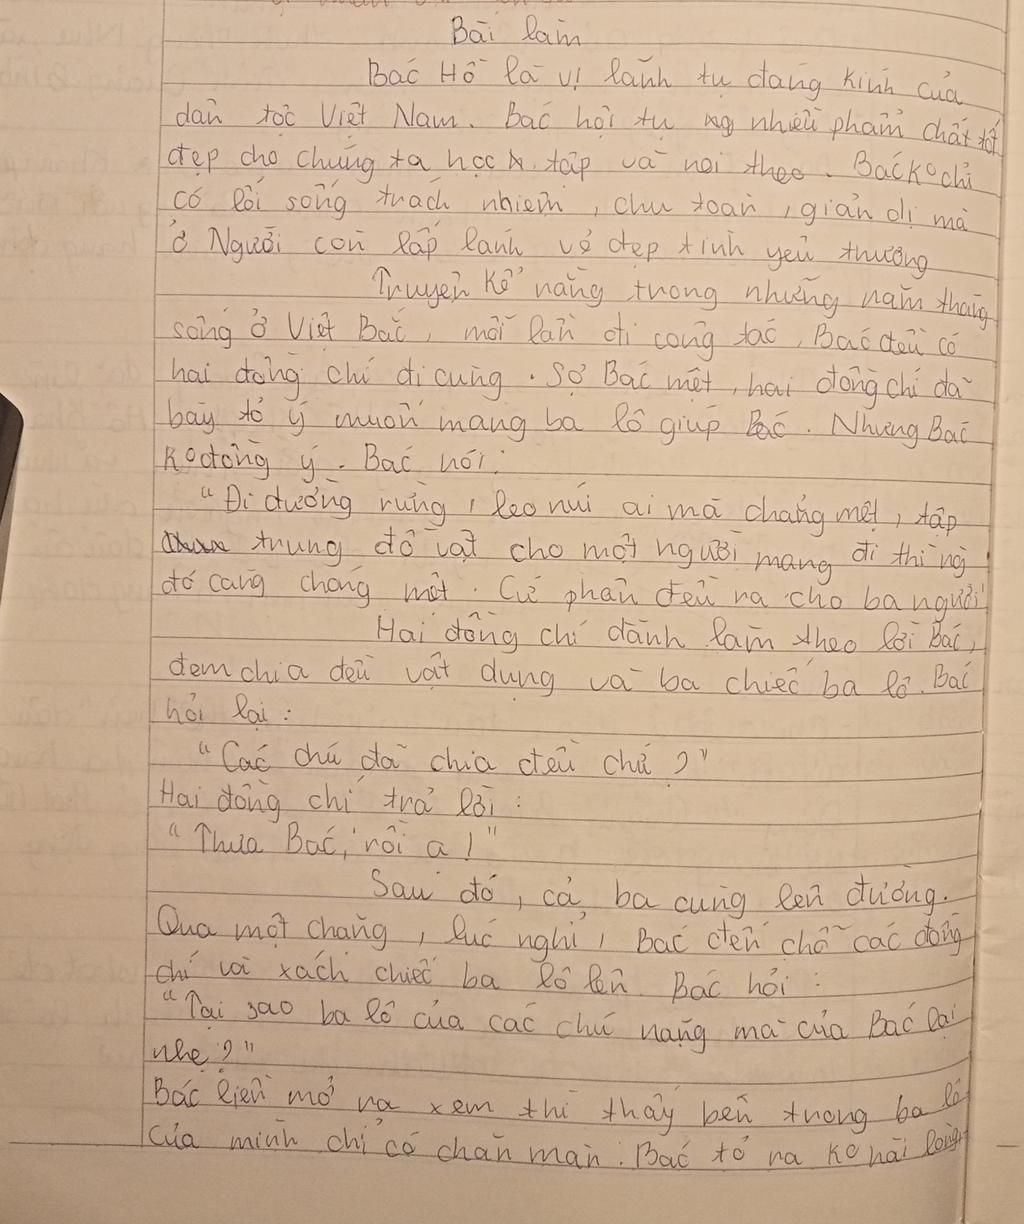 Bài làm
Bác Hồ là vị lãnh tụ đáng kính của
dân tộc Việt Nam. Bác hội tụ nhiều phẩm chất tốt
đẹp cho chúng ta học tập và noi theo. Bác ko chỉ
có lối sống trách nhiệm, chu toàn, giản dị mà
ở Người còn lấp lánh vẻ đẹp tình yêu thương
Truyện kể rằng trong những năm tháng
sống ở Việt Bắc, mỗi lần đi công tác, Bác đều có
hai đồng chí đi cùng. Sợ Bác mệt, hai đồng chí đã
bày tỏ ý muốn mang ba lô giúp Bác. Nhưng Bác
ko đồng ý. Bác nói:
"Đi đường rừng, leo núi ai mà chẳng mệt, tập
trung đồ vật cho một người mang đi thì ng
đó càng chóng mệt. Cứ phân đều ra cho ba người
Hai đồng chí đành làm theo lời Bác,
đem chia đều vật dụng và ba chiếc ba lô. Bác
hỏi lại:
"Các chú đã chia đều chứ?"
Hai đồng chí trả lời:
"Thưa Bác, rồi ạ!"
Sau đó, cả ba cùng lên đường.
Qua một chặng, lúc nghỉ, Bác đến chỗ các đồng
chí và xách chiếc ba lô lên. Bác hỏi:
"Tại sao ba lô của các chú nặng mà của Bác lại
nhẹ?"
Bác liền mở ra xem thì thấy bên trong ba lô
của mình chỉ có chăn màn. Bác tỏ ra ko hài lòng